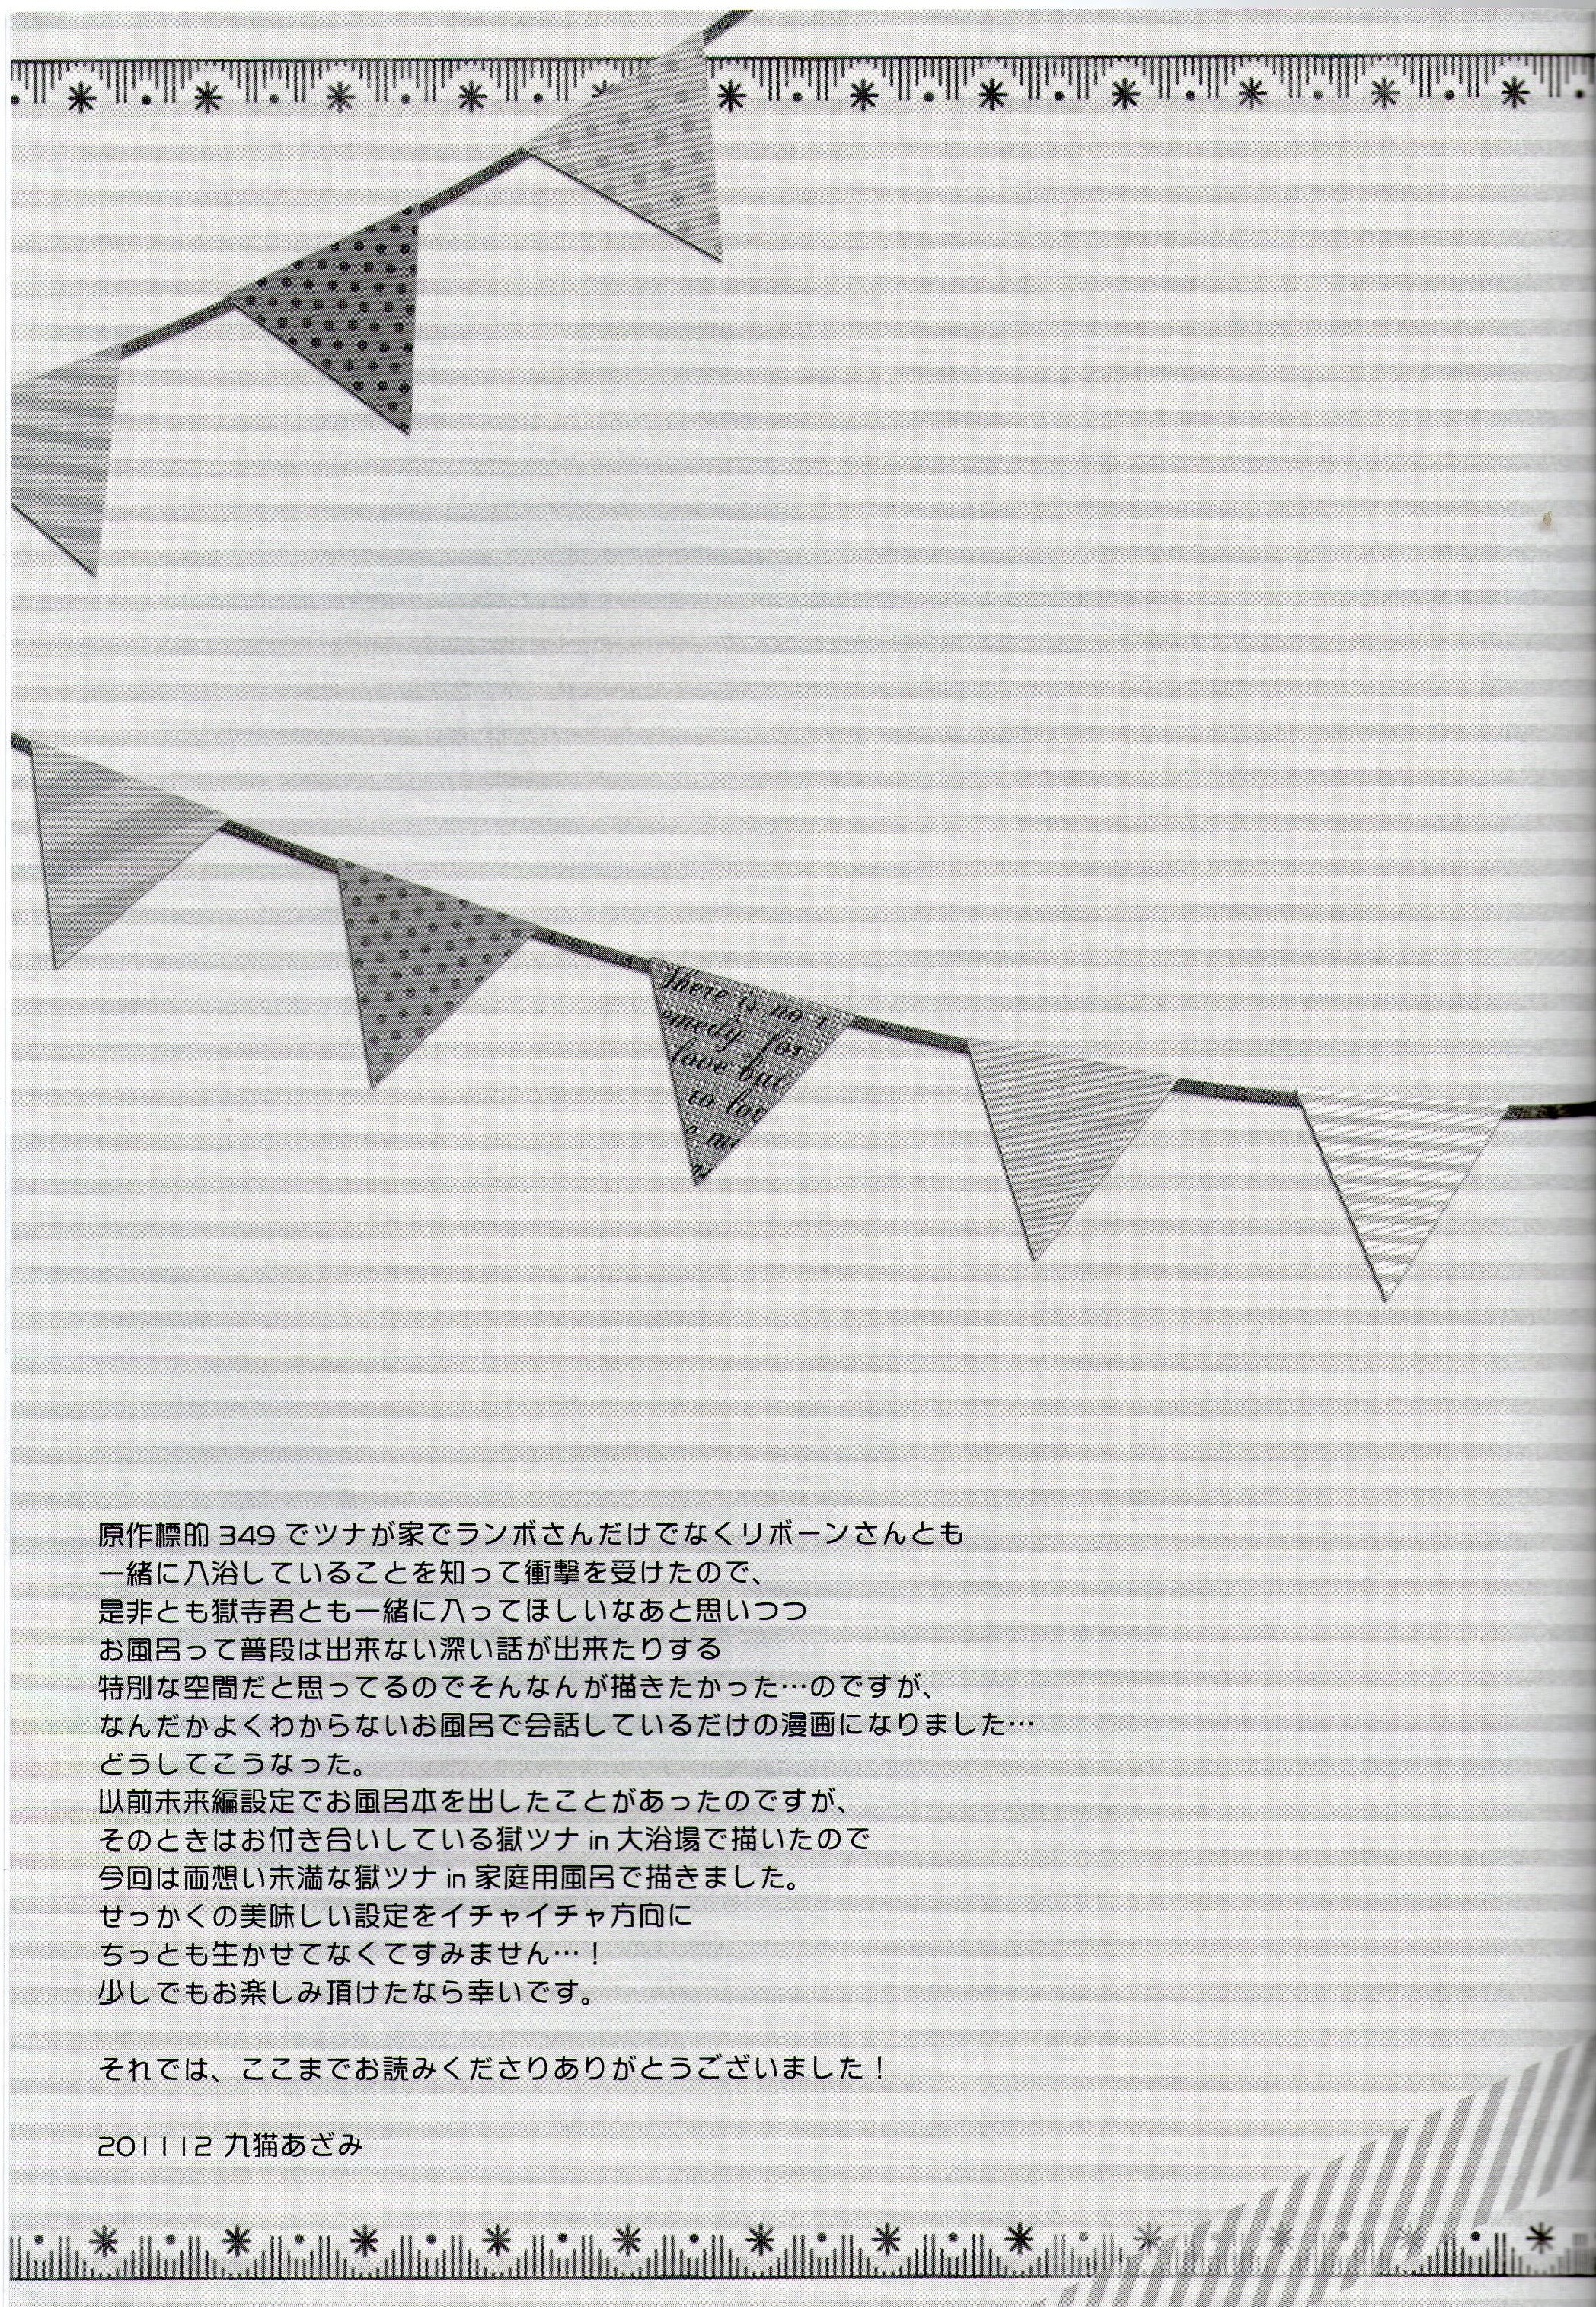 There is no r
emedy for
love but
to lov
e mo
原作標的 349 でツナが家でランボさんだけでなくリボーンさんとも
一緒に入浴していることを知って衝撃を受けたので、
是非とも獄寺君とも一緒に入ってほしいなあと思いつつ
お風呂って普段は出来ない深い話が出来たりする
特別な空間だと思ってるのでそんなんが描きたかった…のですが、
なんだかよくわからないお風呂で会話しているだけの漫画になりました…
どうしてこうなった。
以前未来編設定でお風呂本を出したことがあったのですが、
そのときはお付き合いしている獄ツナ in 大浴場で描いたので
今回は両想い未満な獄ツナ in 家庭用風呂で描きました。
せっかくの美味しい設定をイチャイチャ方向に
ちっとも生かせてなくてすみません…！
少しでもお楽しみ頂けたなら幸いです。
それでは、ここまでお読みくださりありがとうございました！
201112 九猫あざみ